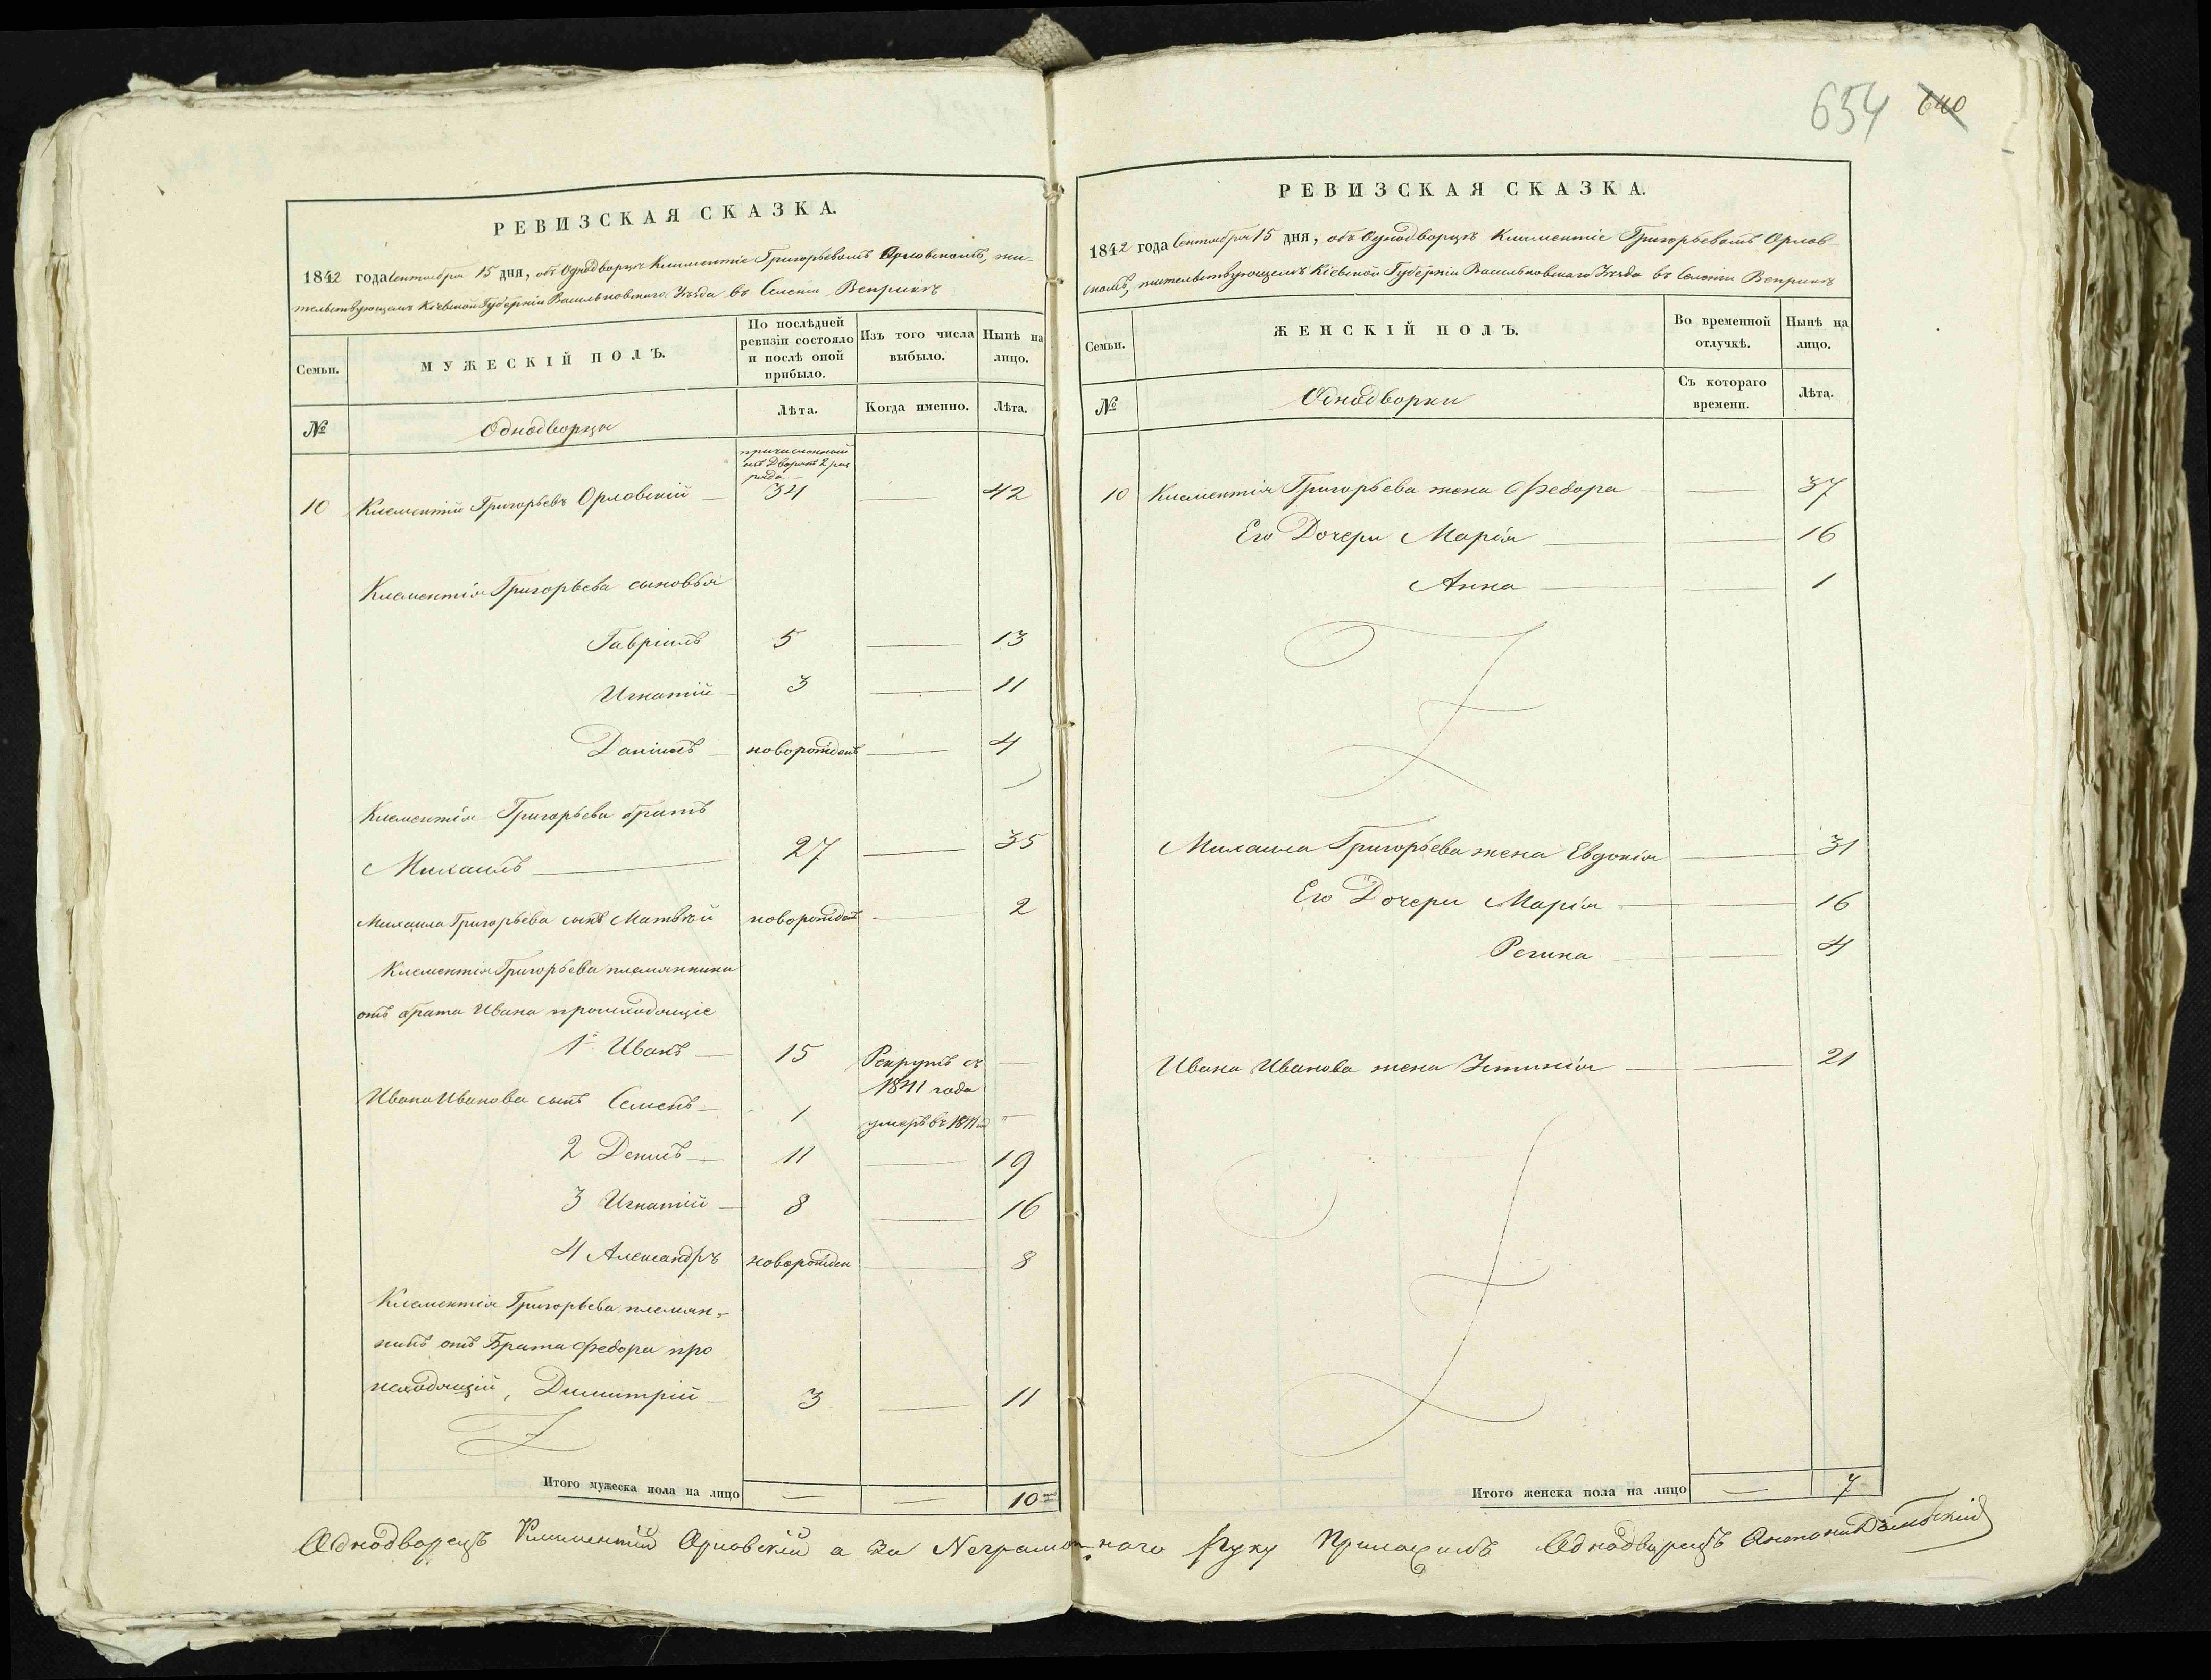 РЕВИЗСКАЯ СКАЗКА.
1842 года Сентября 15 дня, объ Однодворцѣ Климентіе Григорьевомъ Орловскомъ, жи-
тельствующемъ Кіевской Губерніи Васильковскаго Уѣзда въ Селеніи Веприкѣ
Семьи.
МУЖЕСКІЙ ПОЛЪ.
По послѣдней
ревизіи состояло
и послѣ оной
прибыло.
Изъ того числа
выбыло.
Нынѣ на
лицо.
№
Однодворцы
Лѣта.
Когда именно.
Лѣта.
причисленный
изъ Дворянъ 2 раз
ряда
10 Климентій Григорьевъ Орловскій — 34 — 42
Климентія Григорьева сыновья
Гавріилъ 5 — 13
Игнатій — 3 — 11
Даніилъ — новорожденъ — 4
Климентія Григорьева братъ
Михаилъ — 27 — 35
Михаила Григорьева сынъ Матвѣй новорожден — 2
Климентія Григорьева племянники
отъ брата Ивана происходящіе
1й Иванъ — 15 Рекрутъ съ —
1841 года
Ивана Иванова сынъ Семенъ — 1 умеръ въ 1841 —
2 Денисъ — 11 — 19
3 Игнатій — 8 — 16
4 Александръ новорожден — 8
Климентія Григорьева племян-
никъ отъ Брата Федора про
исходящій, Димитрій — 3 — 11
Итого мужеска пола на лицо — — 10
654 640
РЕВИЗСКАЯ СКАЗКА.
1842 года Сентября 15 дня, объ Однодворцѣ Климентіе Григорьевомъ Орлов-
скомъ, жительствующемъ Кіевской Губерніи Васильковскаго Уѣзда въ Селеніи Веприкѣ
Семьи.
ЖЕНСКІЙ ПОЛЪ.
Во временной
отлучкѣ.
Нынѣ на
лицо.
№
Однодворки
Съ котораго
времени.
Лѣта.
10 Климентія Григорьева жена Федора — 37
Его Дочери Марія — — 16
Анна — — 1
Михаила Григорьева жена Евдокія — 31
Его Дочери Марія — — 16
Регина — — 4
Ивана Иванова жена Устинія — — 21
Итого женска пола на лицо — 7
Однодворецъ Климентій Орловскій а за Неграмотнаго руку Приложилъ Однодворецъ Антоній